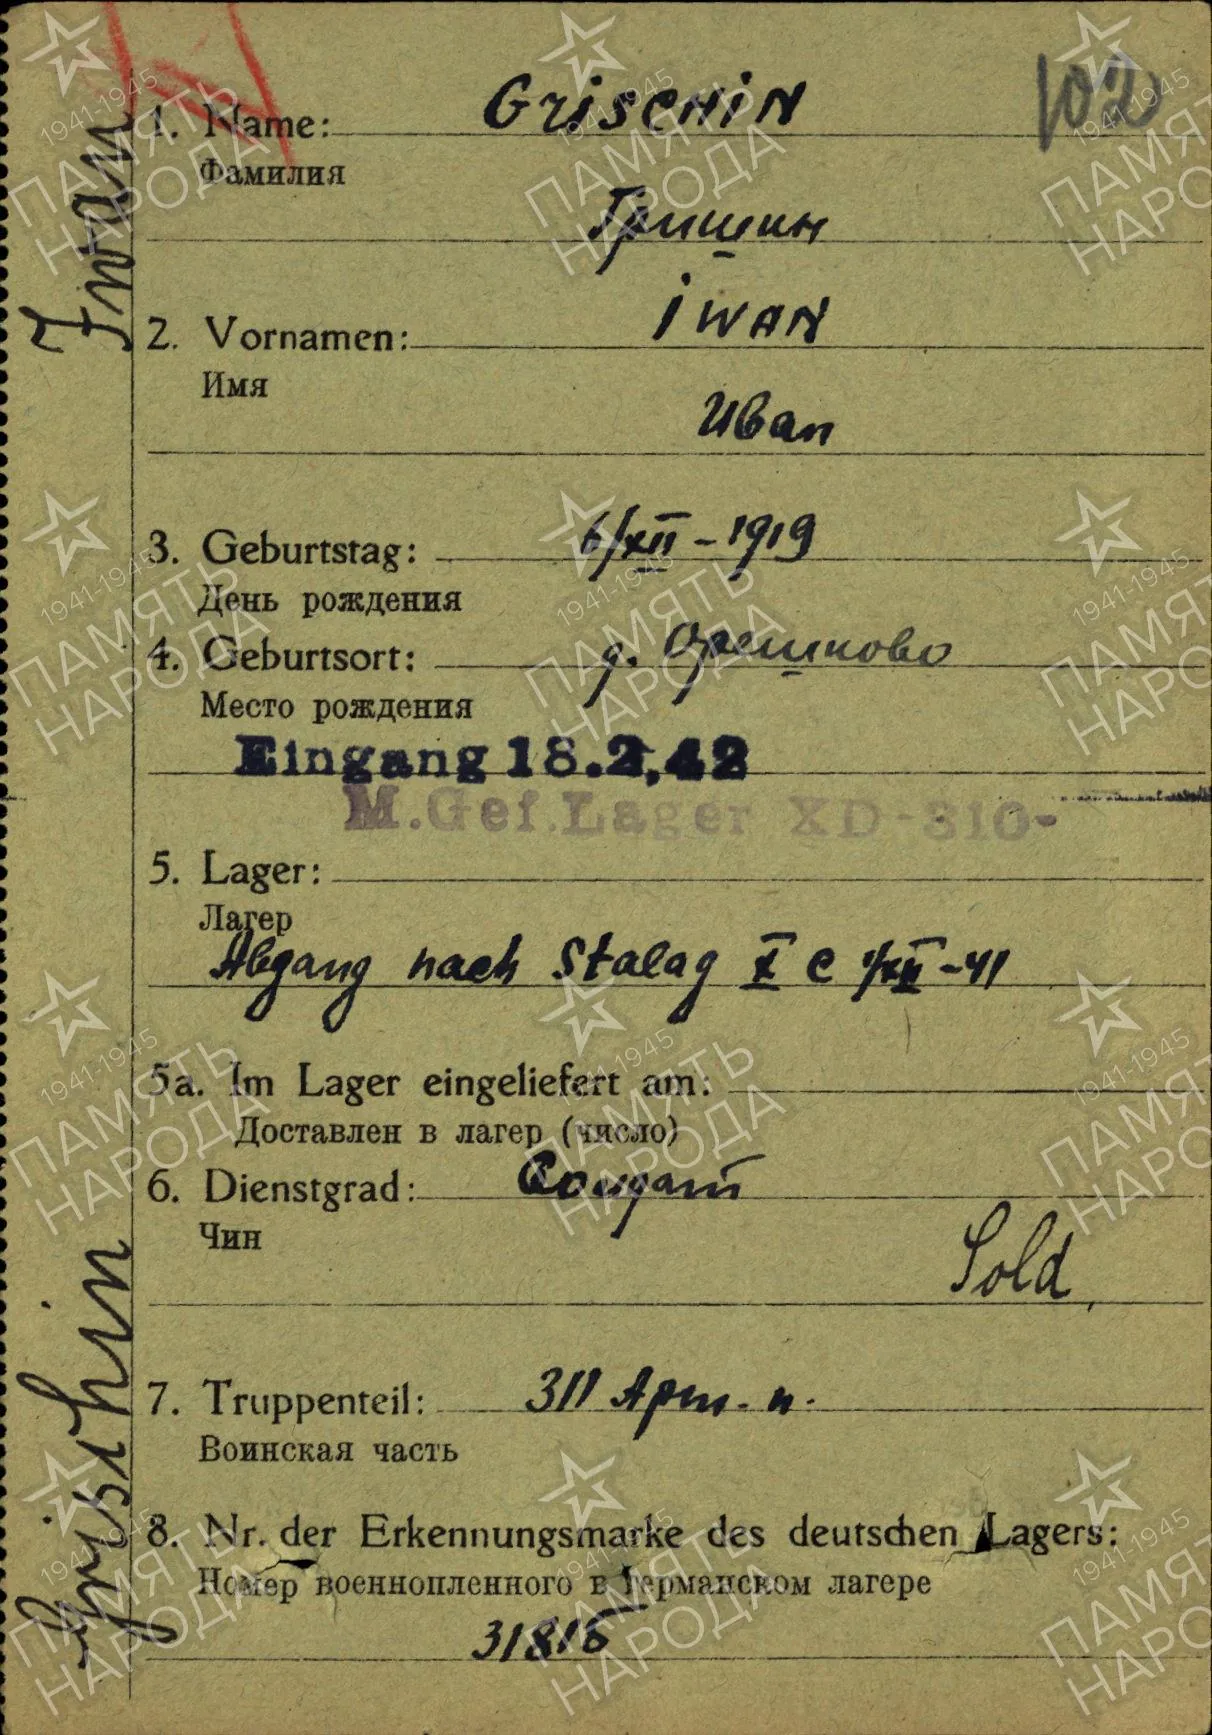 102
1. Name: GriSCHiN
Фамилия
Гришин
2. Vornamen: iWAN
Имя
Иван
3. Geburtstag: 6/XII - 1919
День рождения
4. Geburtsort: д. Орешково
Место рождения
Eingang 18.2.42
M.Gef.Lager XD-310-
5. Lager:
Лагер
Abgang nach Stalag X C 1/XII-41
5a. Im Lager eingeliefert am:
Доставлен в лагер (число)
6. Dienstgrad: Солдат
Чин
Sold.
7. Truppenteil: 311 Арт. п.
Воинская часть
8. Nr. der Erkennungsmarke des deutschen Lagers:
Номер военнопленного в Германском лагере
31815
Grischin Iwan
1941-1945
ПАМЯТЬ
НАРОДА